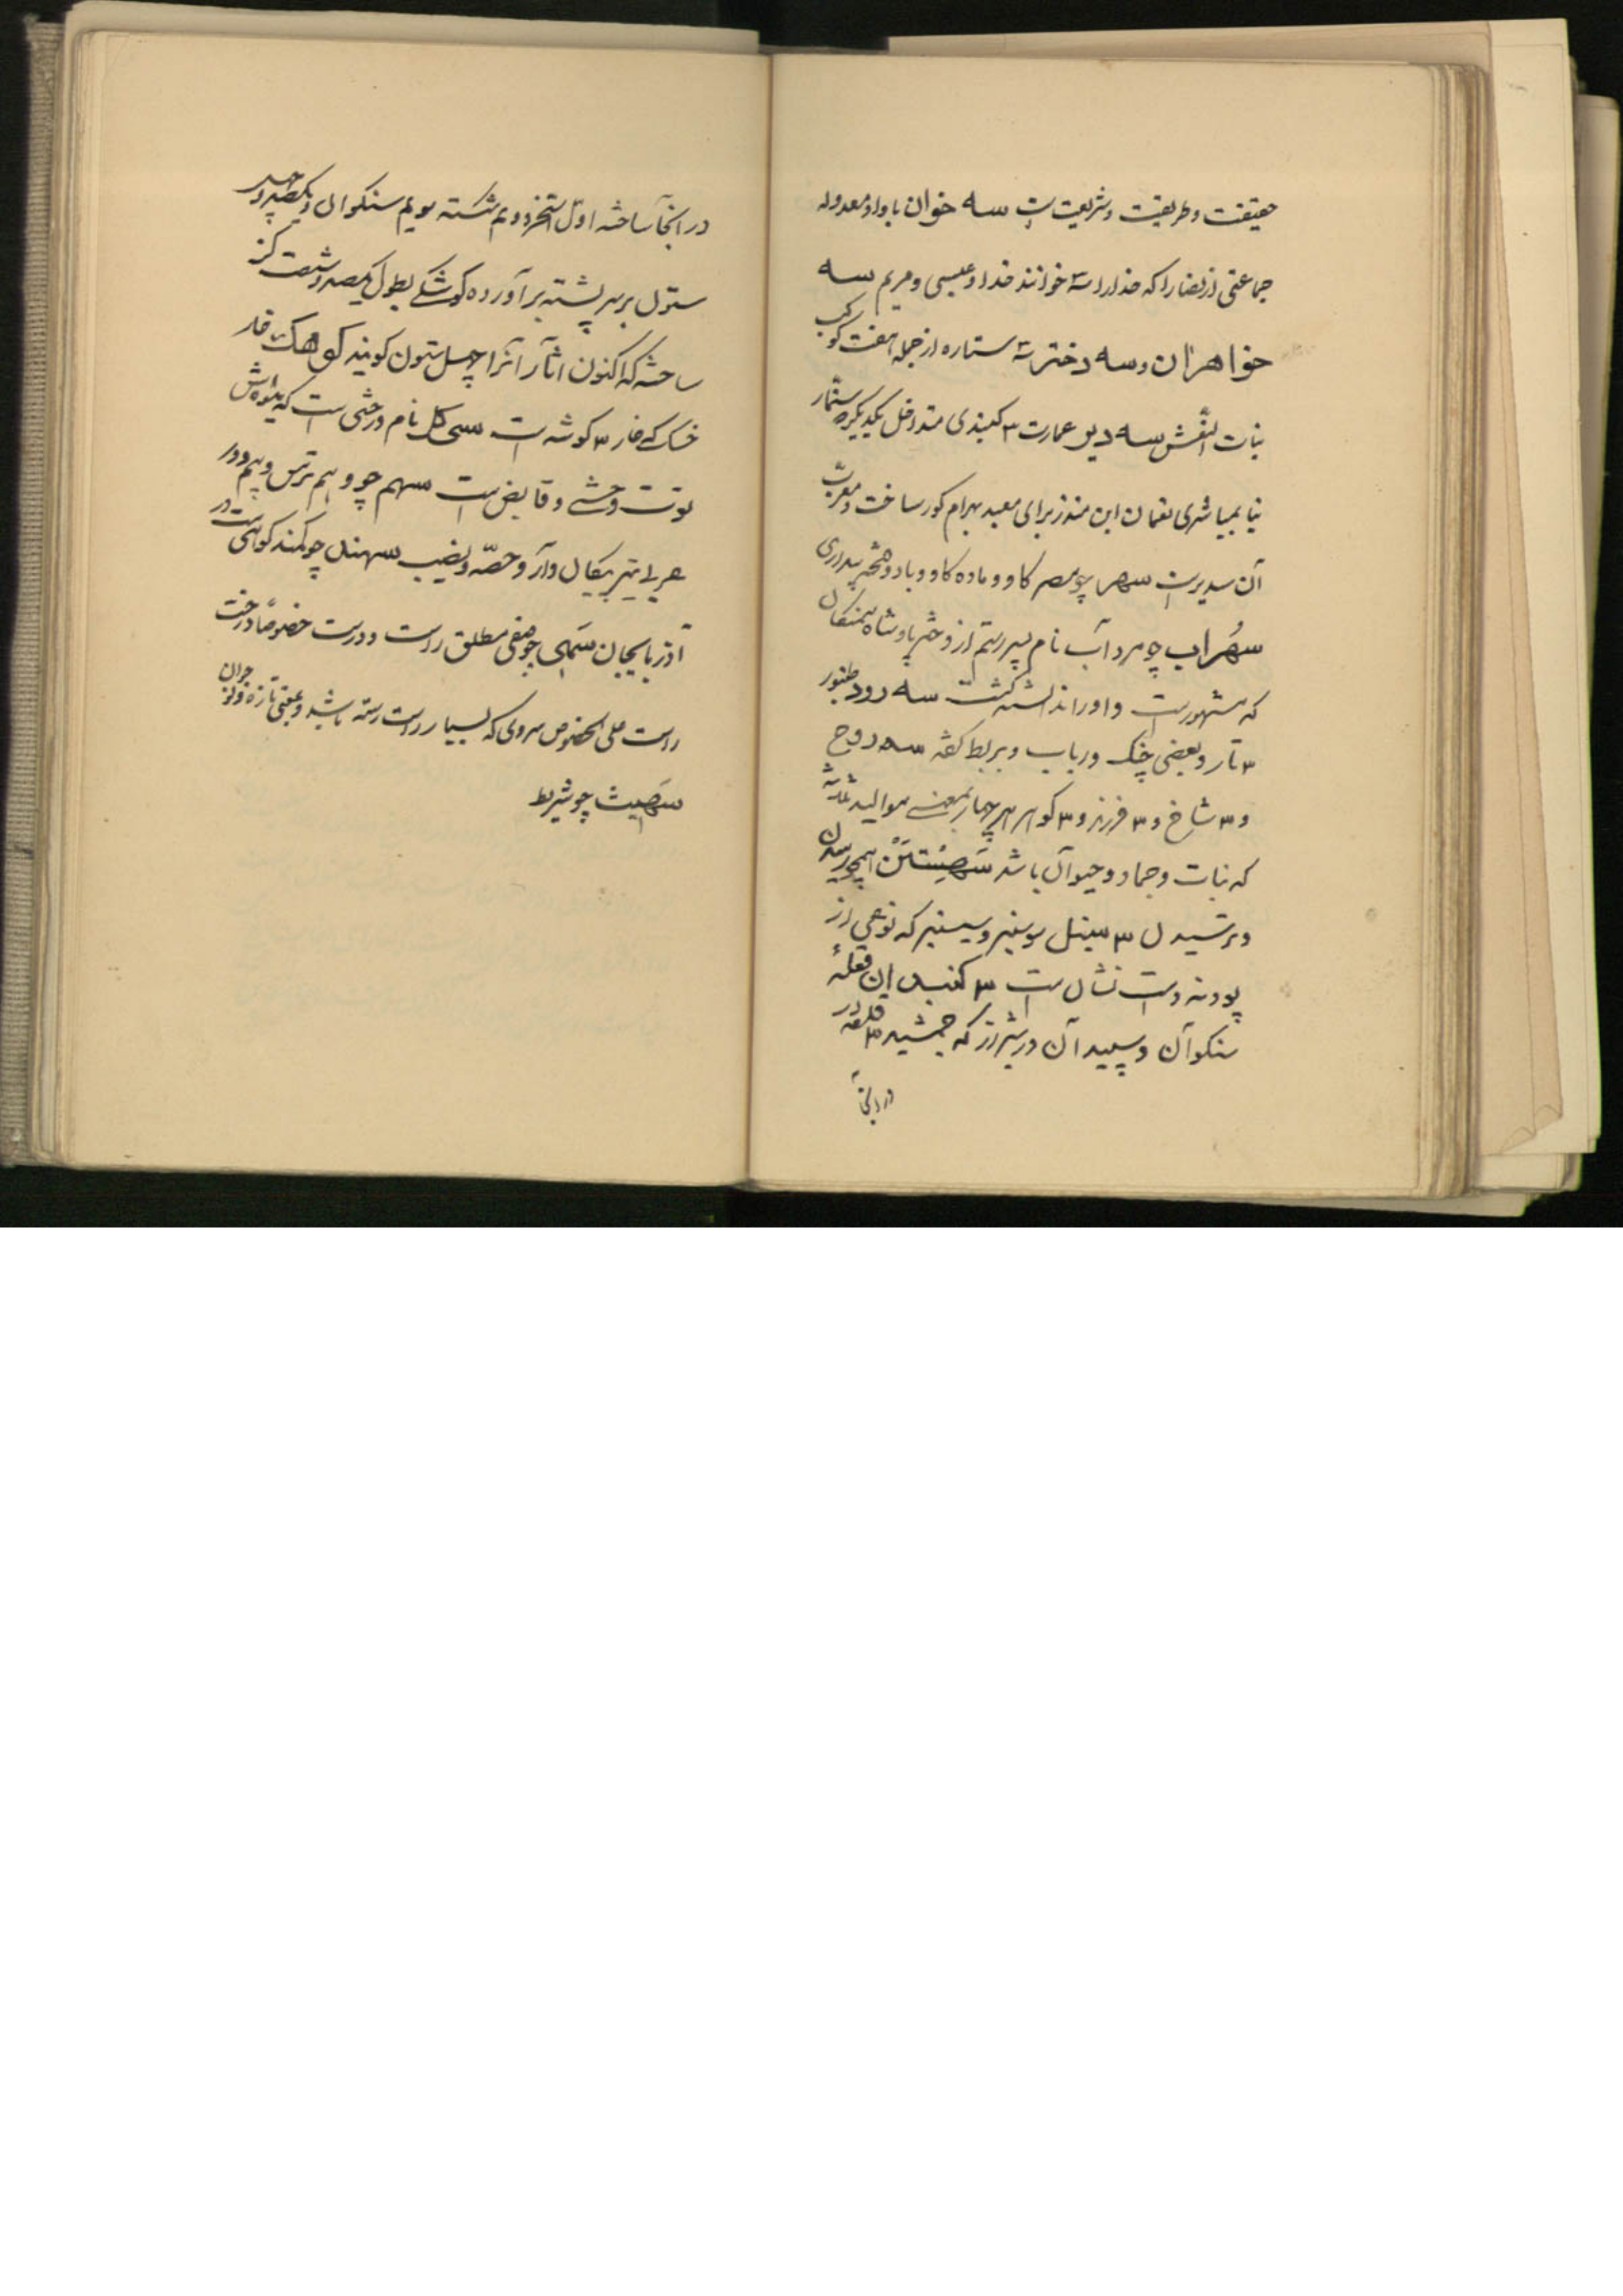 حقیقت و طریقت و شریعت است سه خوان با واو معدوله
جماعتی از نصارا که خدا را سه خوانند خدا و عیسی و مریم سه
خواهران و سه دختر سه ستاره از جمله هفت کوکب
بنات النعش سه دیر عمارت ۳ کنبدی متداخل یکدیکر که سنمار
بنا بمباشری نعمان ابن منذر برای معبد بهرام کور ساخت و معرب
آن سدیر است سهر کاو و ماده کاو و
سُهراب چو مرد آب نام پسر رستم از دختر پادشاه سمنکان
که مشهور است و او را ندانسته کشت سه رود طنبور
۳ تار و بعضی چنک و رباب و بربط کفته سه روح
و ۳ شاخ و ۳ فرزند و ۳ کوهر هر چهار بمعنی موالید ثلاثه
که نبات و جماد و حیوان باشد سَهِیْستَنْ
و ترسیدن ۳ سینبل سوسنبر و سیسنبر که نوعی از
پودنه دست نشان است ۳ کنبدان قلعهٔ
سنکوان و سپید آن در شیراز که جمشید ۳ قلعه در
در انجا
در انجا ساخته اول استخر دویم شکسته سویم سنکوان و یکصد و چهل
ستون بر سر پشته برآورده کوشکی بطول یکصد و شصت کز
ساخته که اکنون آثار آنرا چهل ستون کویند کوهک خار
خسک که خار ۳ کوشه است سی کل نام درختی است که میوه اش
توت وحشی و قابض است سهم چو وهم ترس و بیم و در
عربی تیر پیکان دار و حصّه و نصیب سهند چو کمند کوهی است در
آذربایجان سَهی چو صفی مطلق راست و درست خصوصًا درخت
راست علی الخصوص سروی که بسیار راست رسته باشد و بمعنی تازه و نو جوان
سَهیث چو شریط